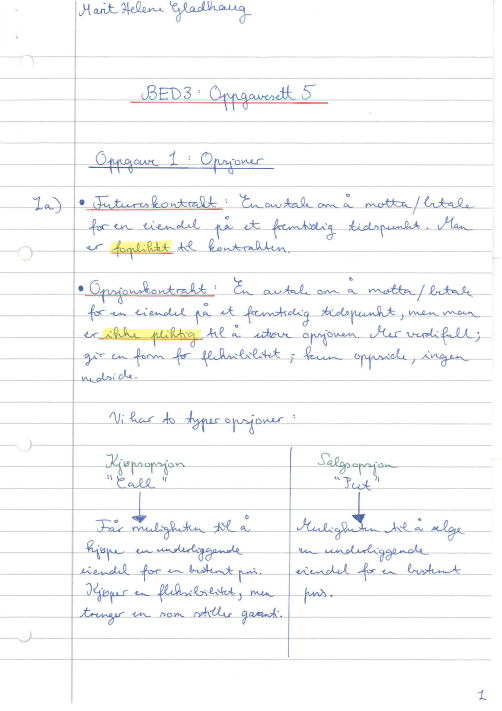 Marit Helene Gladhaug
BED3: Oppgavesett 5
Oppgave 1: Opsjoner
1a) • Futureskontrakt: En avtale om å motta/betale
for en eiendel på et fremtidig tidspunkt. Man
er forpliktet til kontrakten.
• Opsjonskontrakt: En avtale om å motta/betale
for en eiendel på et fremtidig tidspunkt, men man
er ikke pliktig til å utøve opsjonen. Mer verdifull;
gir en form for fleksibilitet; kun oppside, ingen
nedside.
Vi har to typer opsjoner:
Kjøpsopsjon
"Call"
Får muligheten til å
kjøpe en underliggende
eiendel for en bestemt pris.
Kjøper en fleksibilitet, men
trenger en som stiller garanti.
Salgsopsjon
"Put"
Muligheten til å selge
en underliggende
eiendel for en bestemt
pris.
1